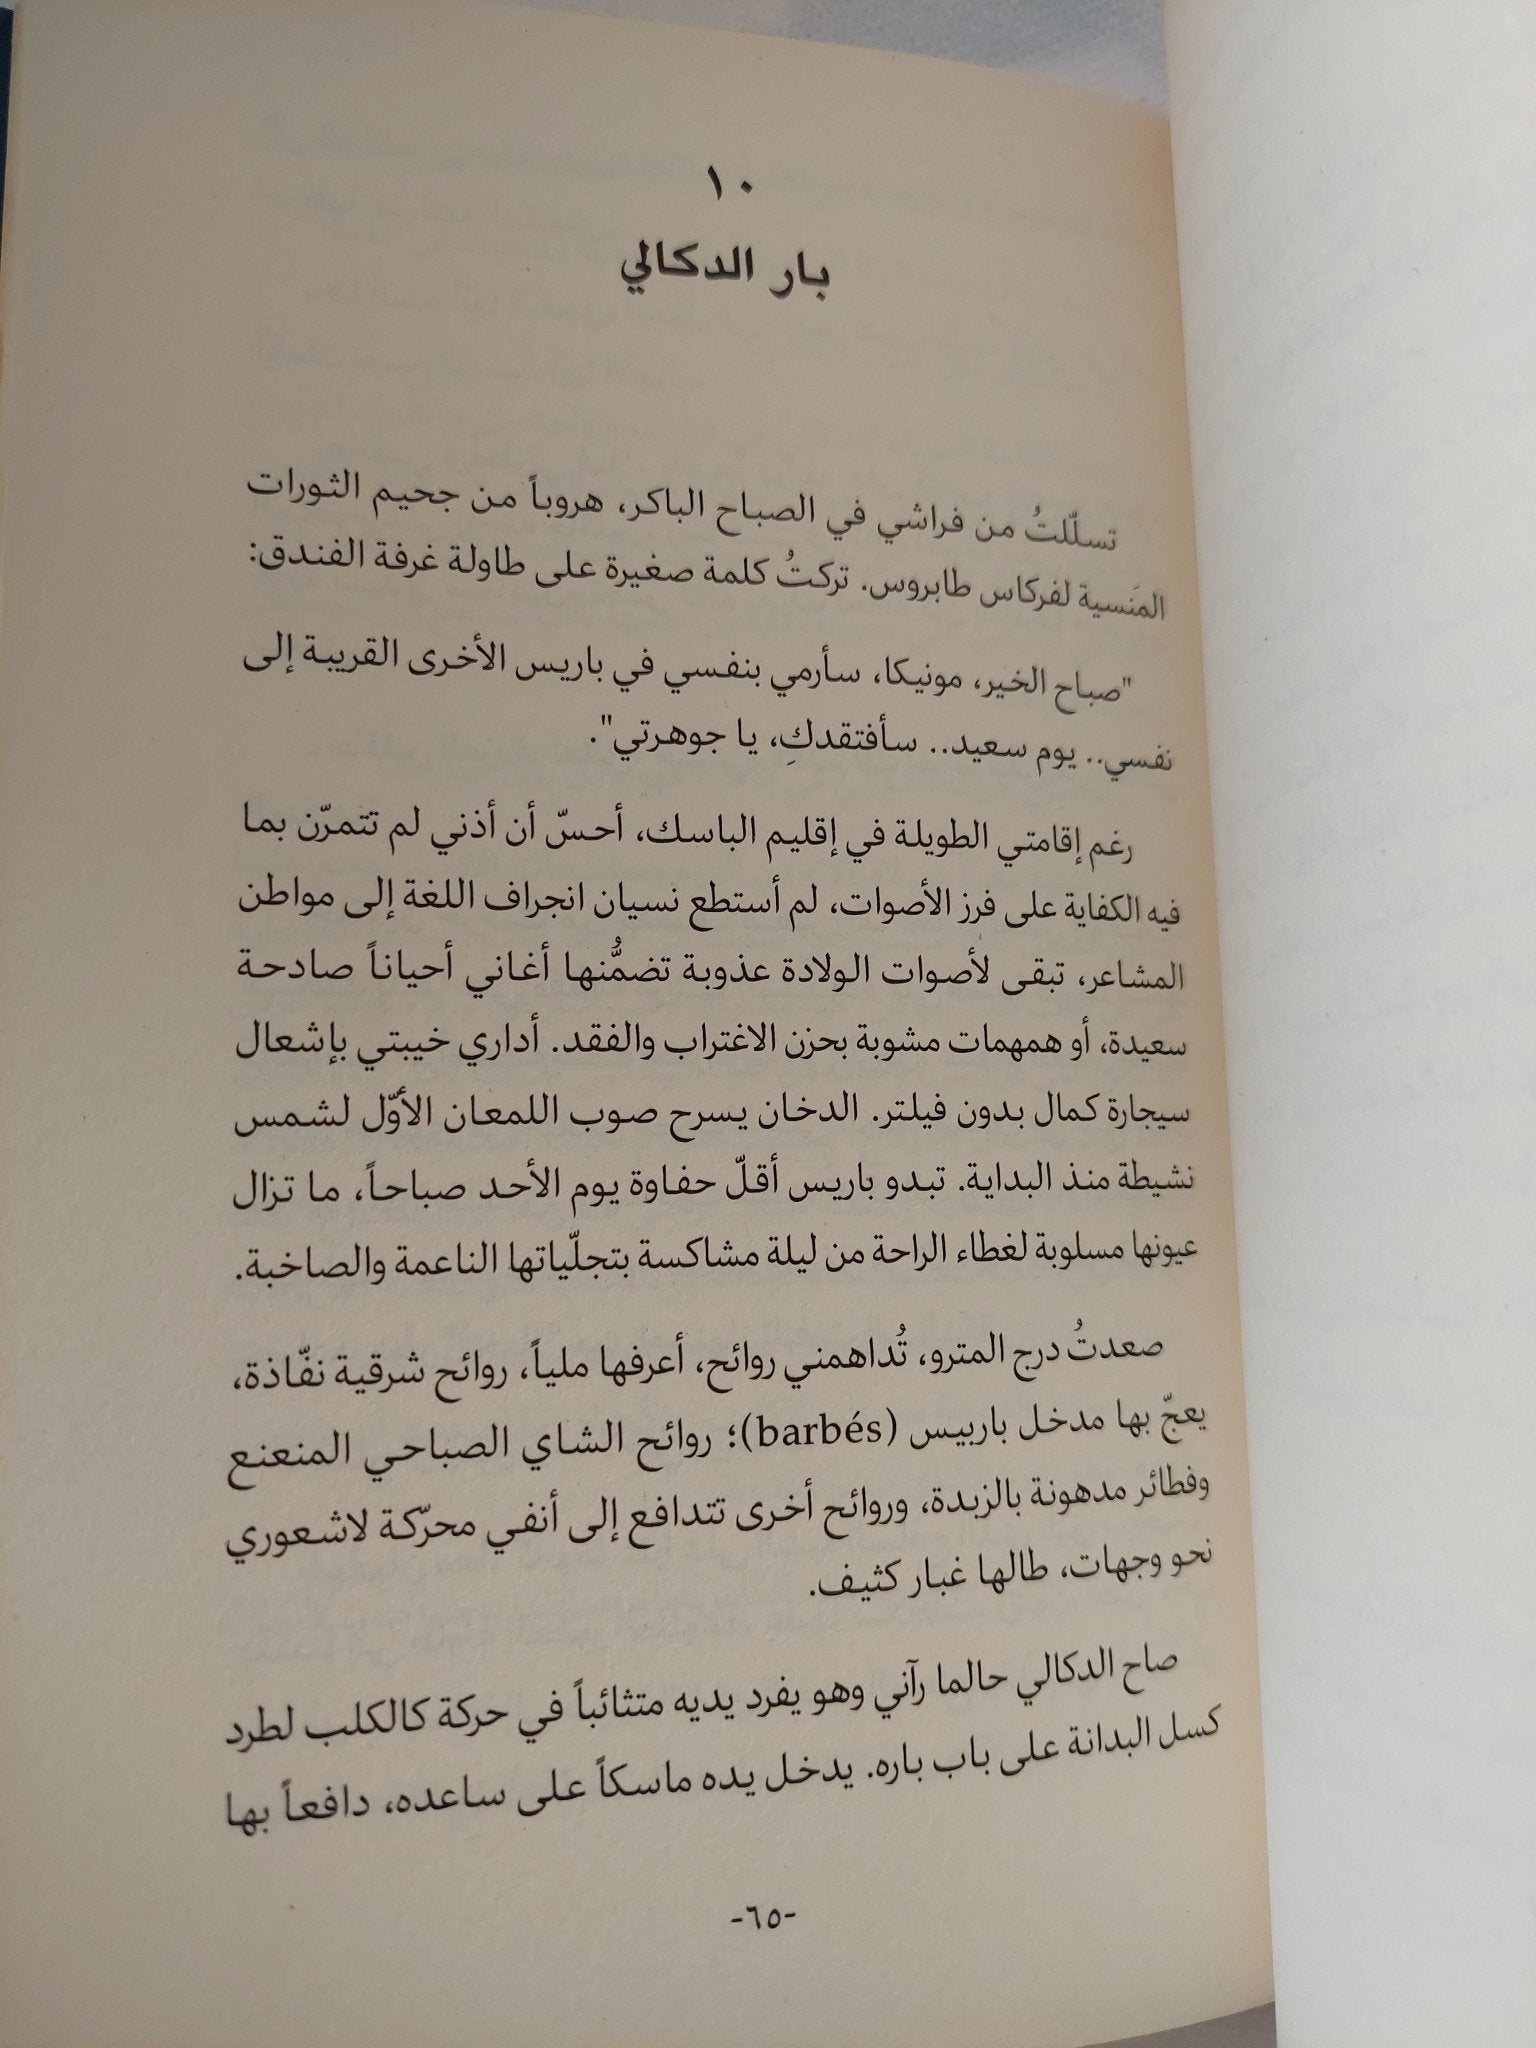 ١٠
بار الدكالي
تسلّلتُ من فراشي في الصباح الباكر، هروباً من جحيم الثورات
المَنسية لفركاس طابروس. تركتُ كلمة صغيرة على طاولة غرفة الفندق:
"صباح الخير، مونيكا، سأرمي بنفسي في باريس الأخرى القريبة إلى
نفسي.. يوم سعيد.. سأفتقدكِ، يا جوهرتي".
رغم إقامتي الطويلة في إقليم الباسك، أحسّ أن أذني لم تتمرّن بما
فيه الكفاية على فرز الأصوات، لم أستطع نسيان انجراف اللغة إلى مواطن
المشاعر، تبقى لأصوات الولادة عذوبة تضمُّنها أغاني أحياناً صادحة
سعيدة، أو همهمات مشوبة بحزن الاغتراب والفقد. أداري خيبتي بإشعال
سيجارة كمال بدون فيلتر. الدخان يسرح صوب اللمعان الأوّل لشمس
نشيطة منذ البداية. تبدو باريس أقلّ حفاوة يوم الأحد صباحاً، ما تزال
عيونها مسلوبة لغطاء الراحة من ليلة مشاكسة بتجلّياتها الناعمة والصاخبة.
صعدتُ درج المترو، تُداهمني روائح، أعرفها ملياً، روائح شرقية نفّاذة،
يعجّ بها مدخل باربيس (barbés)؛ روائح الشاي الصباحي المنعنع
وفطائر مدهونة بالزبدة، وروائح أخرى تتدافع إلى أنفي محرّكة لاشعوري
نحو وجهات، طالها غبار كثيف.
صاح الدكالي حالما رآني وهو يفرد يديه متثائباً في حركة كالكلب لطرد
كسل البدانة على باب باره. يدخل يده ماسكاً على ساعده، دافعاً بها
-٦٥-